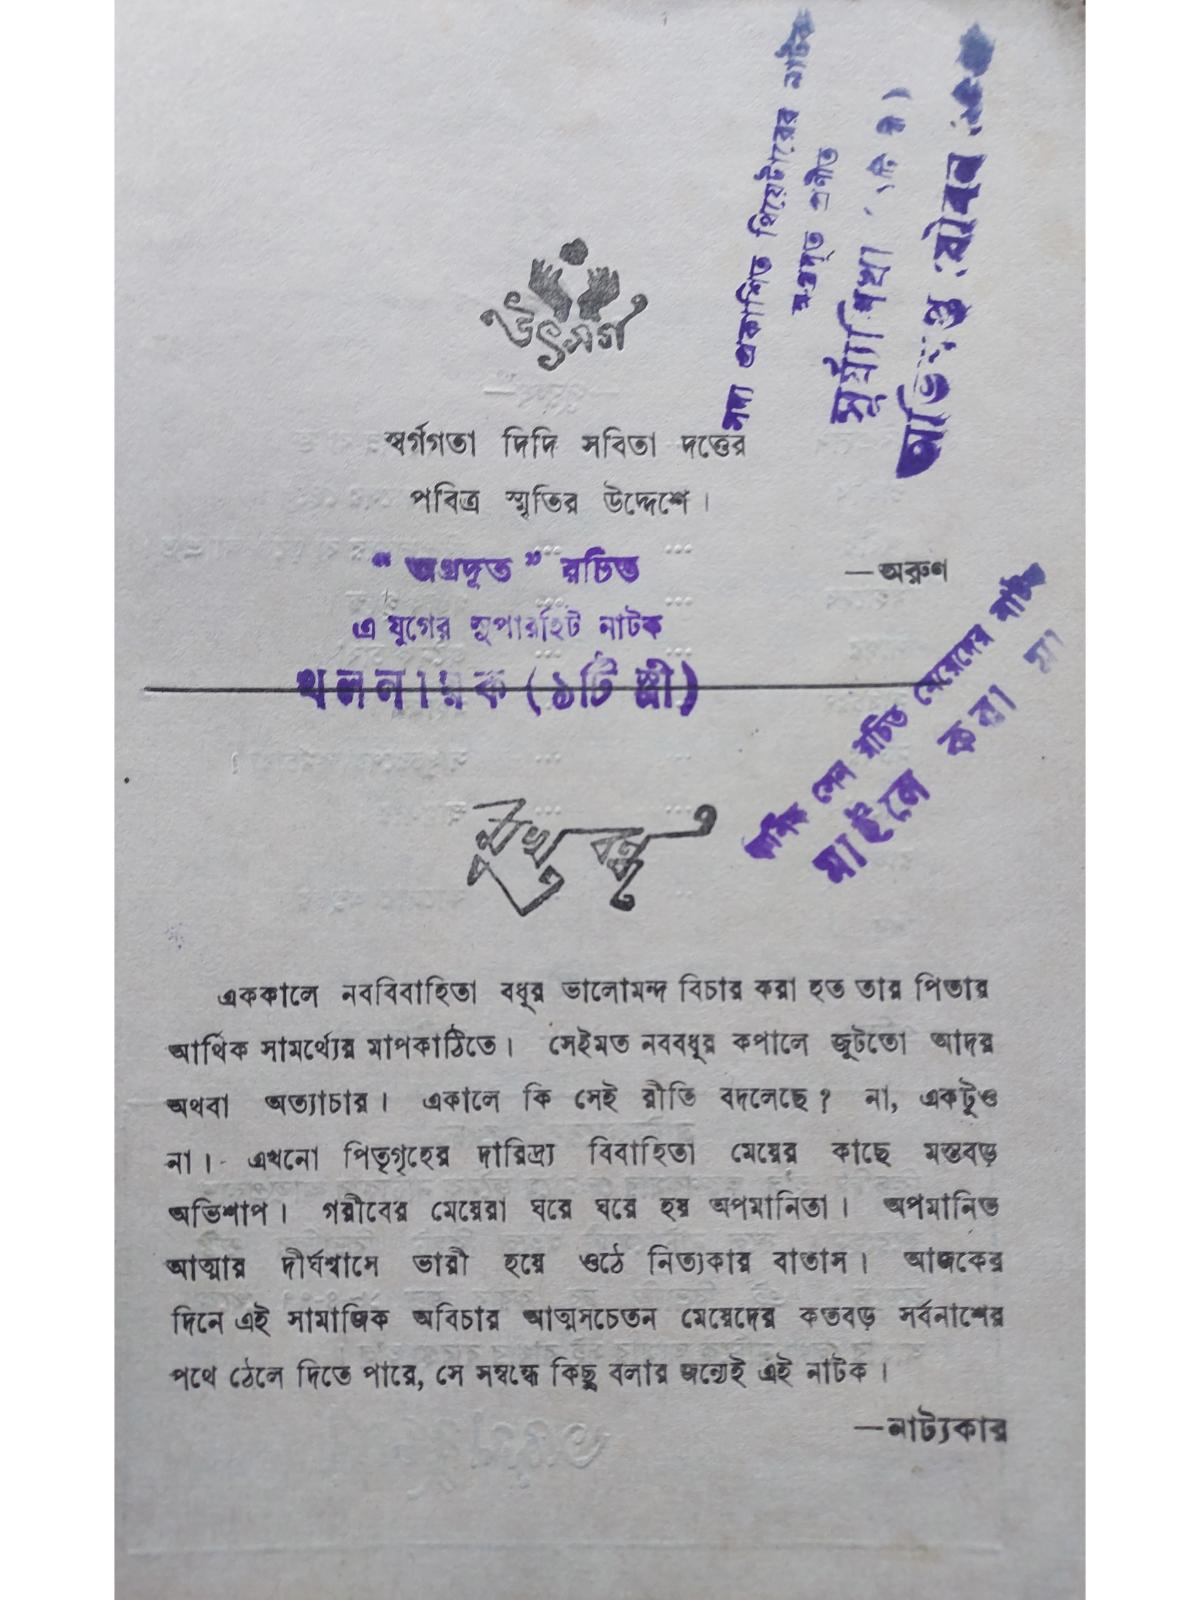 উৎসর্গ
স্বর্গগতা দিদি সবিতা দত্তের
পবিত্র স্মৃতির উদ্দেশে।
—অরুণ
সদ্য প্রকাশিত থিয়েটারের নাটক
অগ্রদূত প্রণীত
সূর্য্যশিখা
অভিশপ্ত যৌবন
“অগ্রদূত” রচিত
এ যুগের সুপারহিট নাটক
খলনায়ক (১টি স্ত্রী)
সেন রচিত মেয়েদের নাটক
মাইলে করা মা
মুখবন্ধ
এককালে নববিবাহিতা বধূর ভালোমন্দ বিচার করা হত তার পিতার
আর্থিক সামর্থ্যের মাপকাঠিতে। সেইমত নববধূর কপালে জুটতো আদর
অথবা অত্যাচার। একালে কি সেই রীতি বদলেছে? না, একটুও
না। এখনো পিতৃগৃহের দারিদ্র্য বিবাহিতা মেয়ের কাছে মস্তবড়
অভিশাপ। গরীবের মেয়েরা ঘরে ঘরে হয় অপমানিতা। অপমানিত
আত্মার দীর্ঘশ্বাসে ভারী হয়ে ওঠে নিত্যকার বাতাস। আজকের
দিনে এই সামাজিক অবিচার আত্মসচেতন মেয়েদের কতবড় সর্বনাশের
পথে ঠেলে দিতে পারে, সে সম্বন্ধে কিছু বলার জন্যেই এই নাটক।
—নাট্যকার